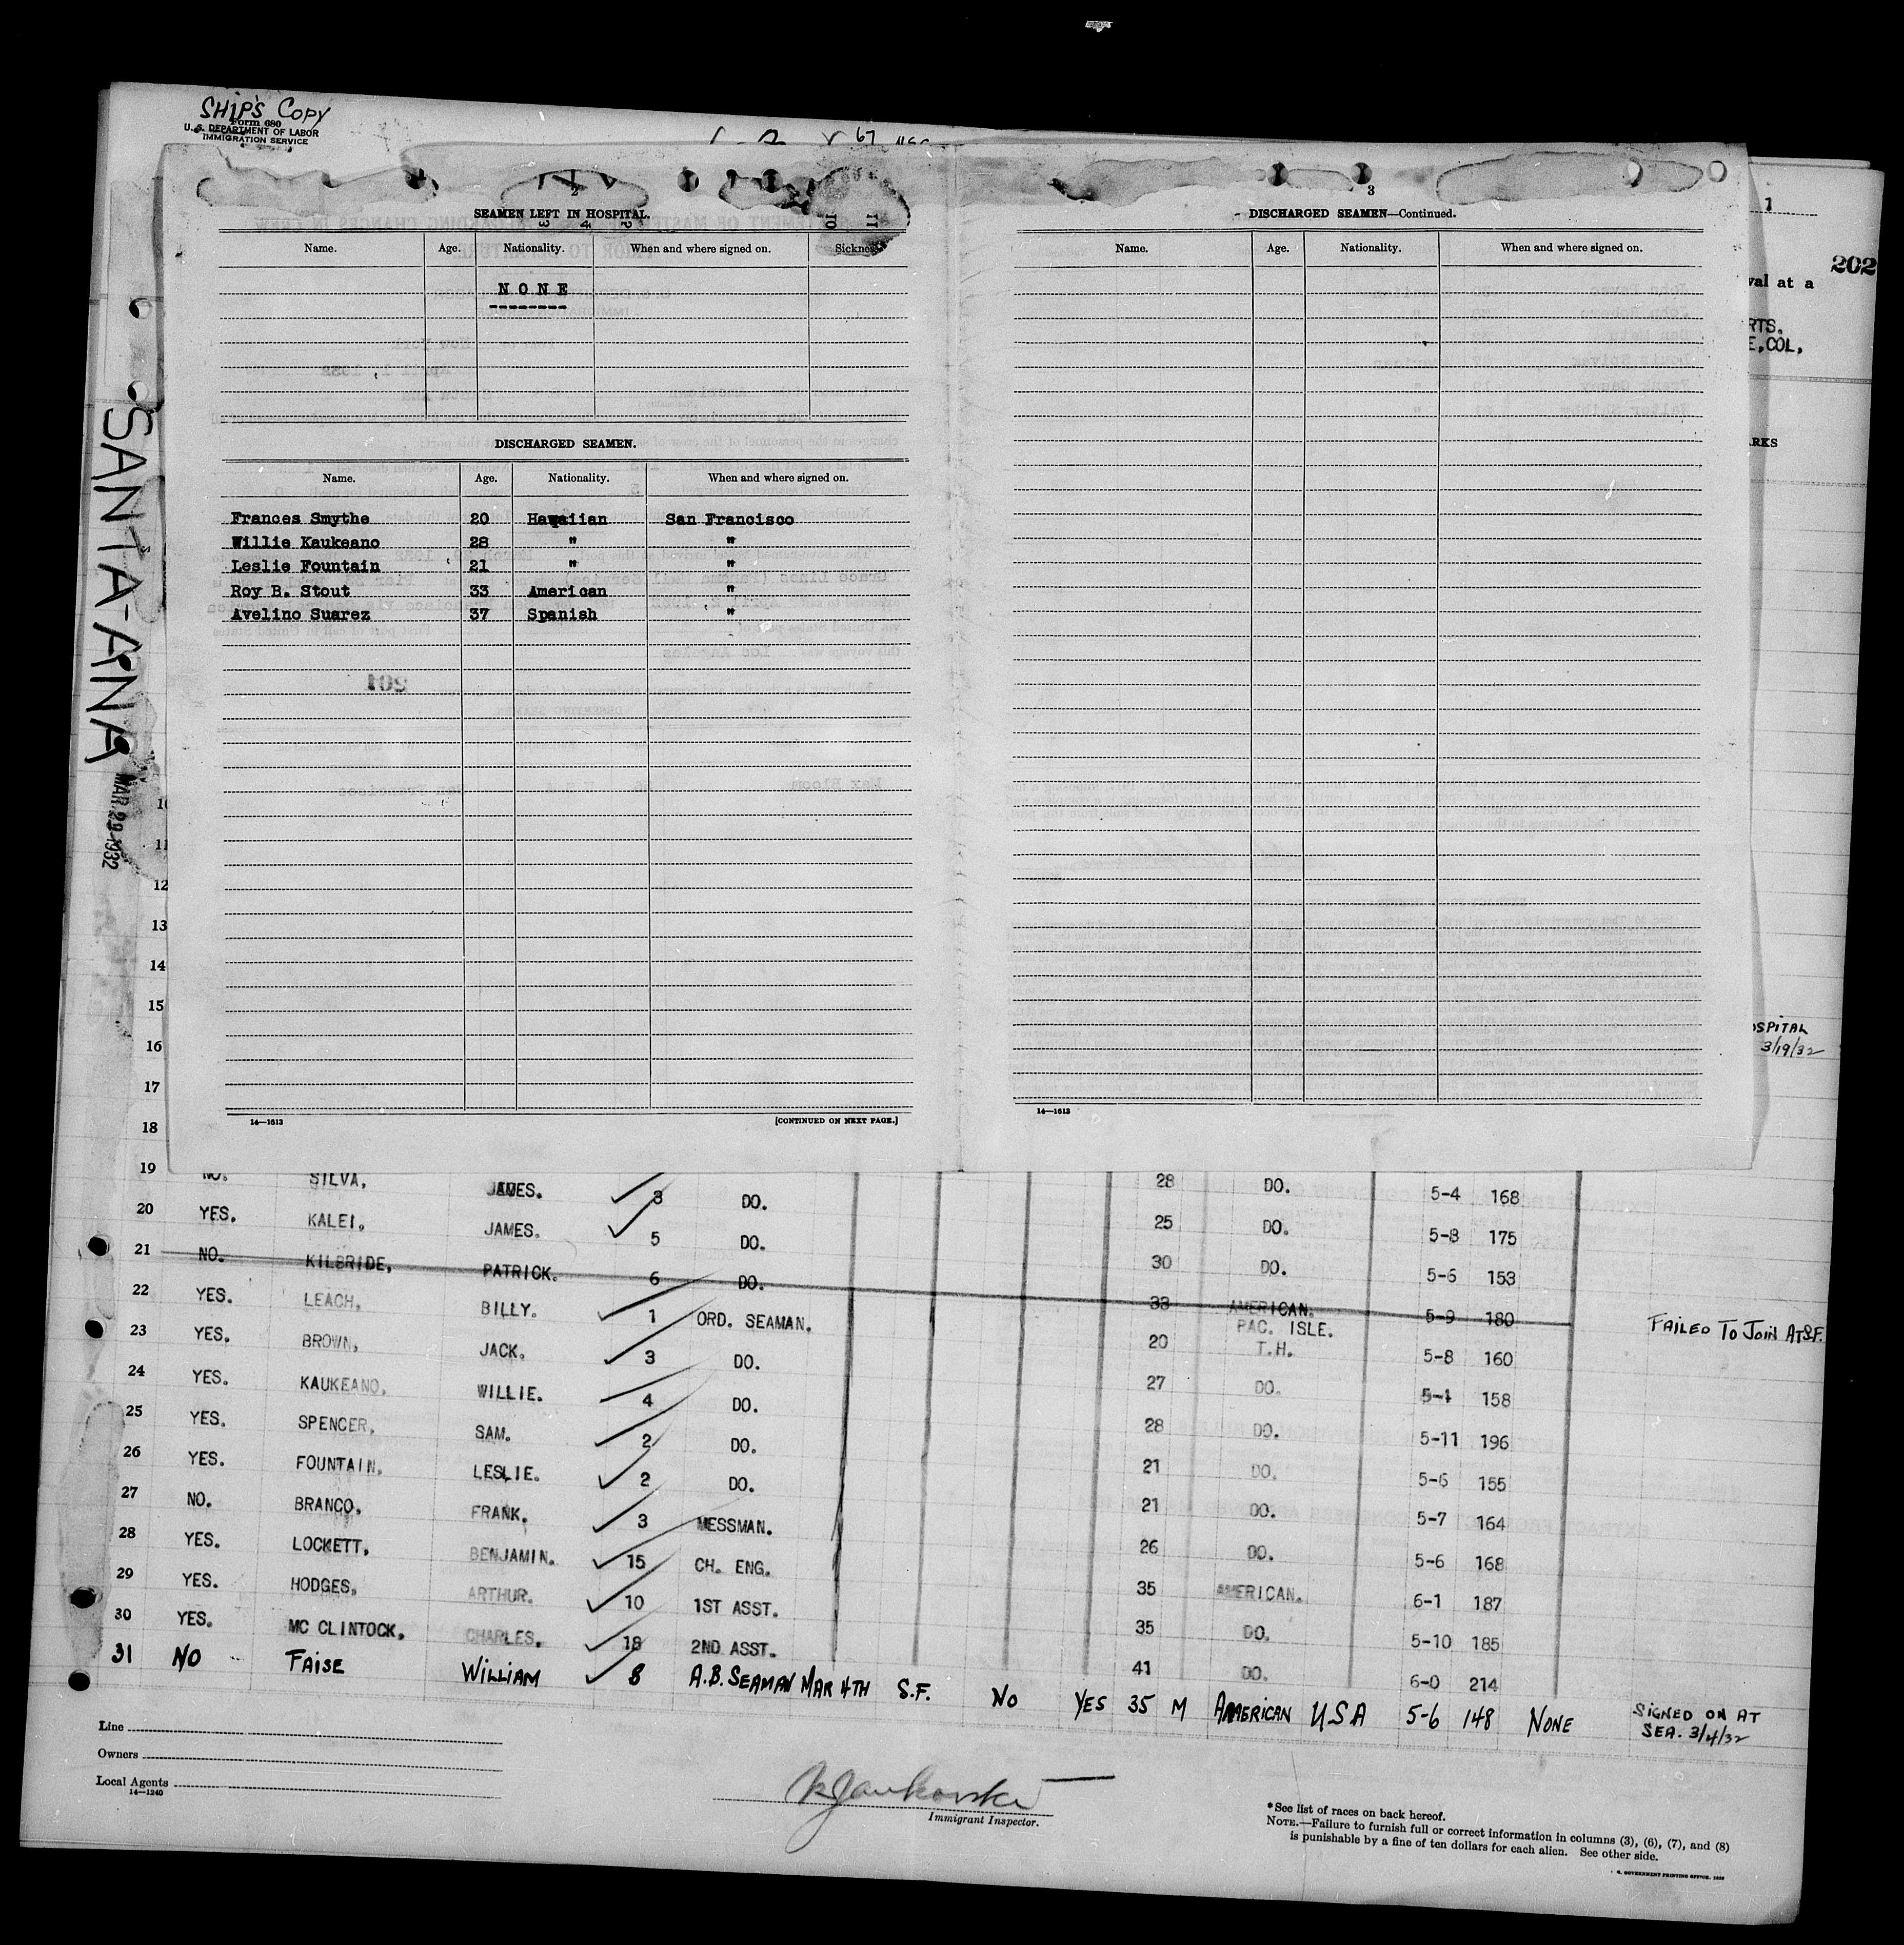 SHIP'S COPY
Form 680
U. S. DEPARTMENT OF LABOR
IMMIGRATION SERVICE
67
SANTA-ANA
MAR 29 1932
SEAMEN LEFT IN HOSPITAL.
Name. Age. Nationality. When and where signed on. Sickness
NONE
DISCHARGED SEAMEN.
Name. Age. Nationality. When and where signed on.
Frances Smythe 20 Hawaiian San Francisco
Willie Kaukeano 28 " "
Leslie Fountain 21 " "
Roy B. Stout 33 American "
Avelino Suarez 37 Spanish "
14—1613 [CONTINUED ON NEXT PAGE.]
3
DISCHARGED SEAMEN—Continued.
Name. Age. Nationality. When and where signed on.
14—1613
1
202
val at a
RTS.
E,COL,
ARKS
OSPITAL
3/19/32
10
11
12
13
14
15
16
17
18
19 NO. SILVA, JAMES. 3 DO. 28 DO. 5-4 168
20 YES. KALEI, JAMES. 5 DO. 25 DO. 5-8 175
21 NO. KILBRIDE, PATRICK. 6 DO. 30 DO. 5-6 153
22 YES. LEACH, BILLY. 1 ORD. SEAMAN. 33 AMERICAN. 5-9 180 FAILED TO JOIN AT S.F.
23 YES. BROWN, JACK. 3 DO. 20 PAC. ISLE. T.H. 5-8 160
24 YES. KAUKEANO, WILLIE. 4 DO. 27 DO. 5-4 158
25 YES. SPENCER, SAM. 2 DO. 28 DO. 5-11 196
26 YES. FOUNTAIN, LESLIE. 2 DO. 21 DO. 5-6 155
27 NO. BRANCO, FRANK. 3 MESSMAN. 21 DO. 5-7 164
28 YES. LOCKETT, BENJAMIN. 15 CH. ENG. 26 DO. 5-6 168
29 YES. HODGES, ARTHUR. 10 1ST ASST. 35 AMERICAN. 6-1 187
30 YES. MC CLINTOCK, CHARLES. 18 2ND ASST. 35 DO. 5-10 185
41 DO. 6-0 214
31 NO FAISE WILLIAM 8 A.B. SEAMAN MAR 4TH S.F. NO YES 35 M AMERICAN USA 5-6 148 NONE SIGNED ON AT SEA. 3/4/32
Line
Owners
Local Agents
14—1240
Immigrant Inspector.
*See list of races on back hereof.
NOTE.—Failure to furnish full or correct information in columns (3), (6), (7), and (8)
is punishable by a fine of ten dollars for each alien. See other side.